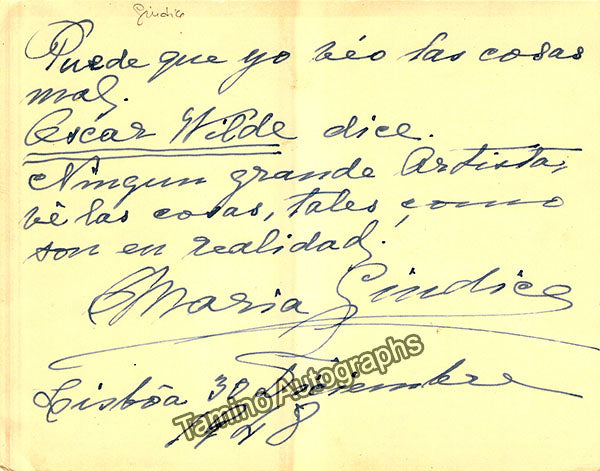 Giudice
Puede que yo véo las cosas
mal.
Oscar Wilde dice.
Ningun grande Artista,
vê las cosas, tales, como
son en realidad!
Maria Giudice
Lisbôa 30
1948
TaminoAutographs